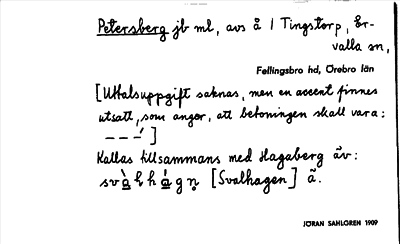 Petersberg jb ml, avs å 1 Tingstorp, Er-
valla sn,
Fellingsbro hd, Örebro län
[Uttalsuppgift saknas, men en accent finnes
utsatt, som anger, att betoningen skall vara:
– – –́ ]
Kallas tillsammans med Hagaberg äv:
[Svalhagen] ä.
JÖRAN SAHLGREN 1909